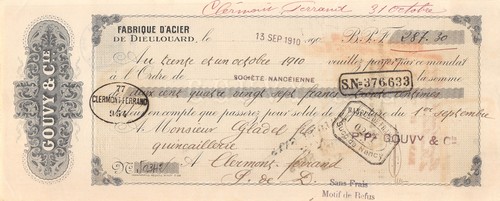 Clermont Ferrand 31 Octobre
FABRIQUE D'ACIER
DE DIEULOUARD, le 13 SEP 1910 190 B.P.F. 287.30
Au trente et un octobre 1910 veuillez payer par mandat
à l'Ordre de SOCIÉTÉ NANCÉIENNE la somme
S.N° 376,633
deux cent quatre vingt sept francs trente centimes
en compte que passerez pour solde de facture du 1er septembre
GOUVY & CIE
77
CLERMONT-FERRAND
954
A Monsieur
P. PON GOUVY & CIE
quincaillerie
A Clermont Ferrand
P. de D.
Sans Frais
Motif de Refus